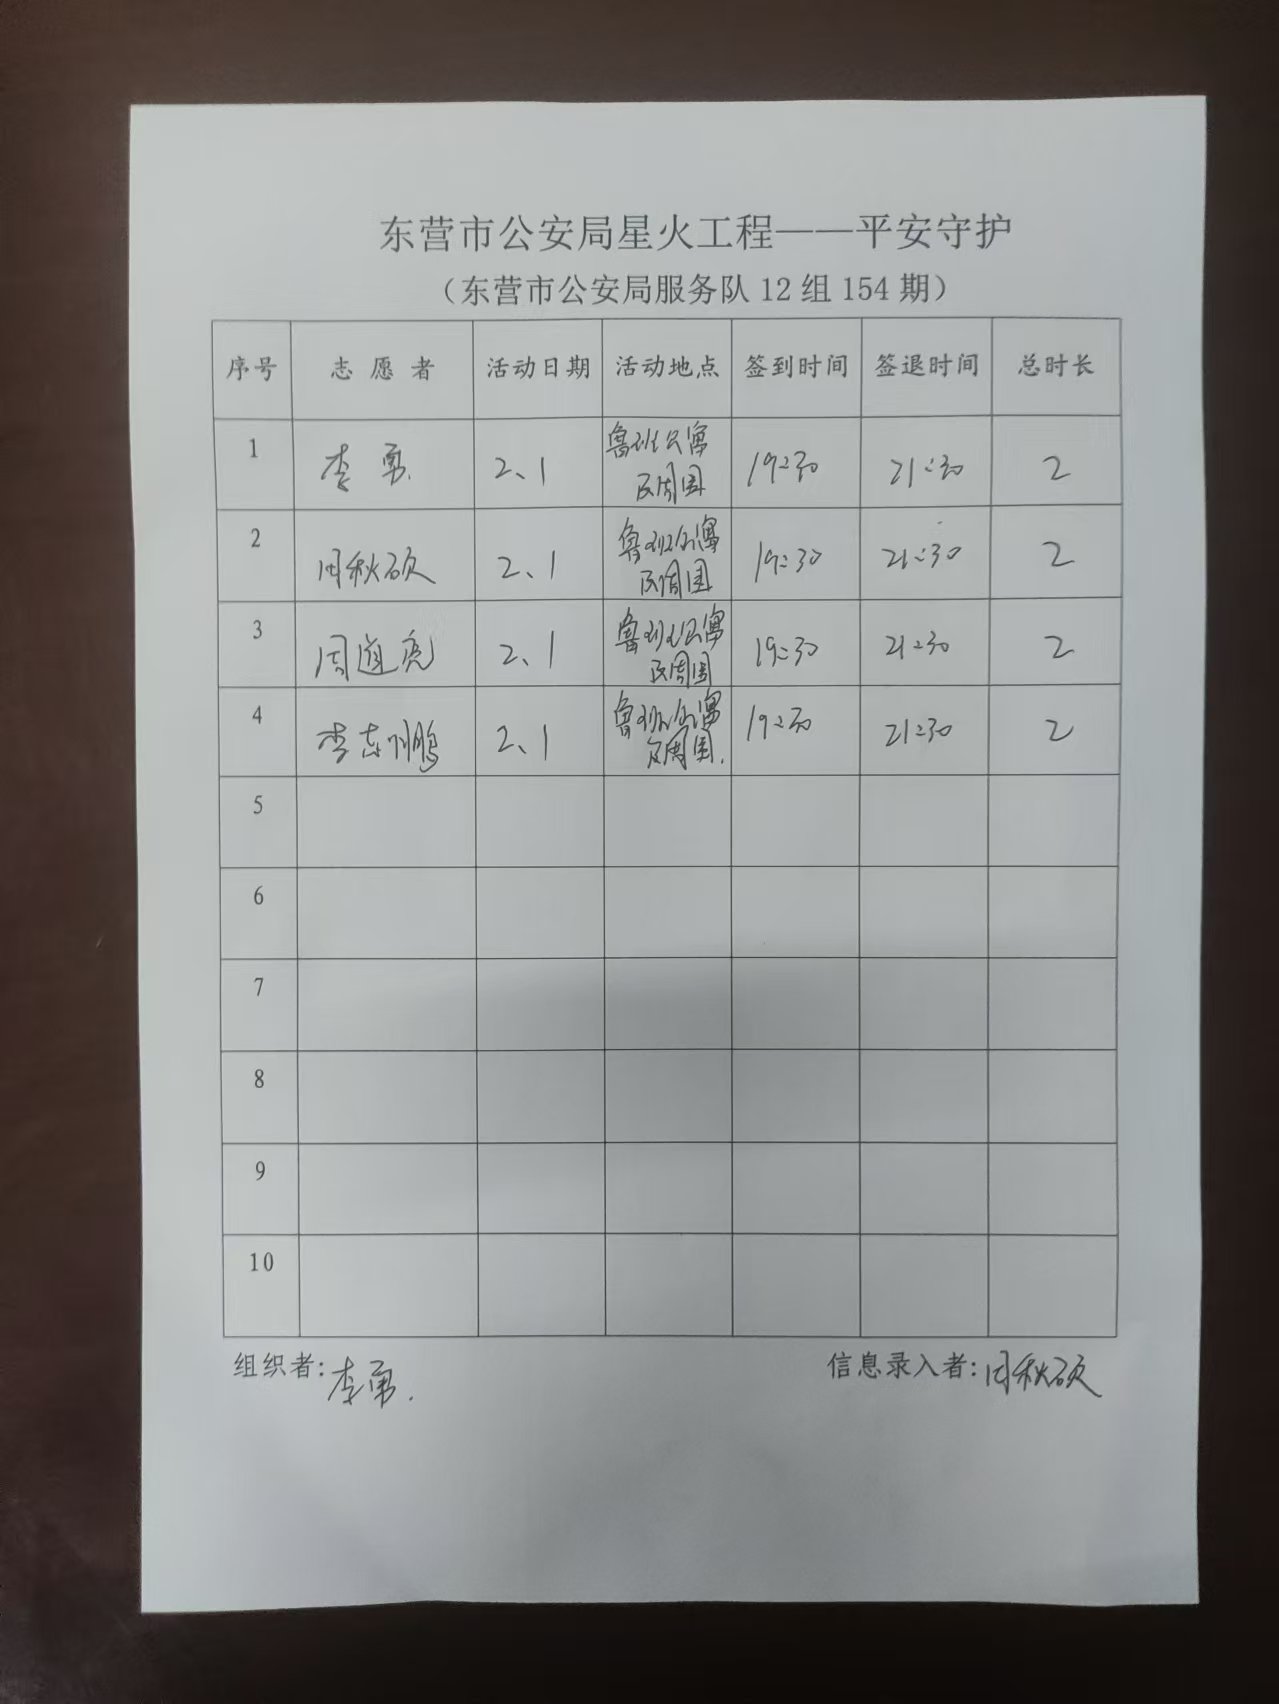 东营市公安局星火工程——平安守护
（东营市公安局服务队12组154期）
序号 志愿者 活动日期 活动地点 签到时间 签退时间 总时长
1 李勇 2、1 鲁班公寓及周围 19:30 21:30 2
2 周秋硕 2、1 鲁班公寓及周围 19:30 21:30 2
3 周道虎 2、1 鲁班公寓及周围 19:30 21:30 2
4 李志鹏 2、1 鲁班公寓及周围. 19:30 21:30 2
5
6
7
8
9
10
组织者:李勇. 信息录入者:周秋硕